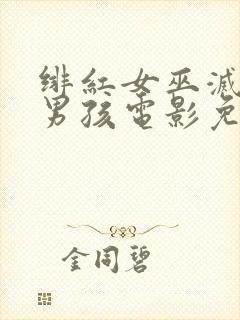 绯红女巫滅
男孩電影免
金同碧